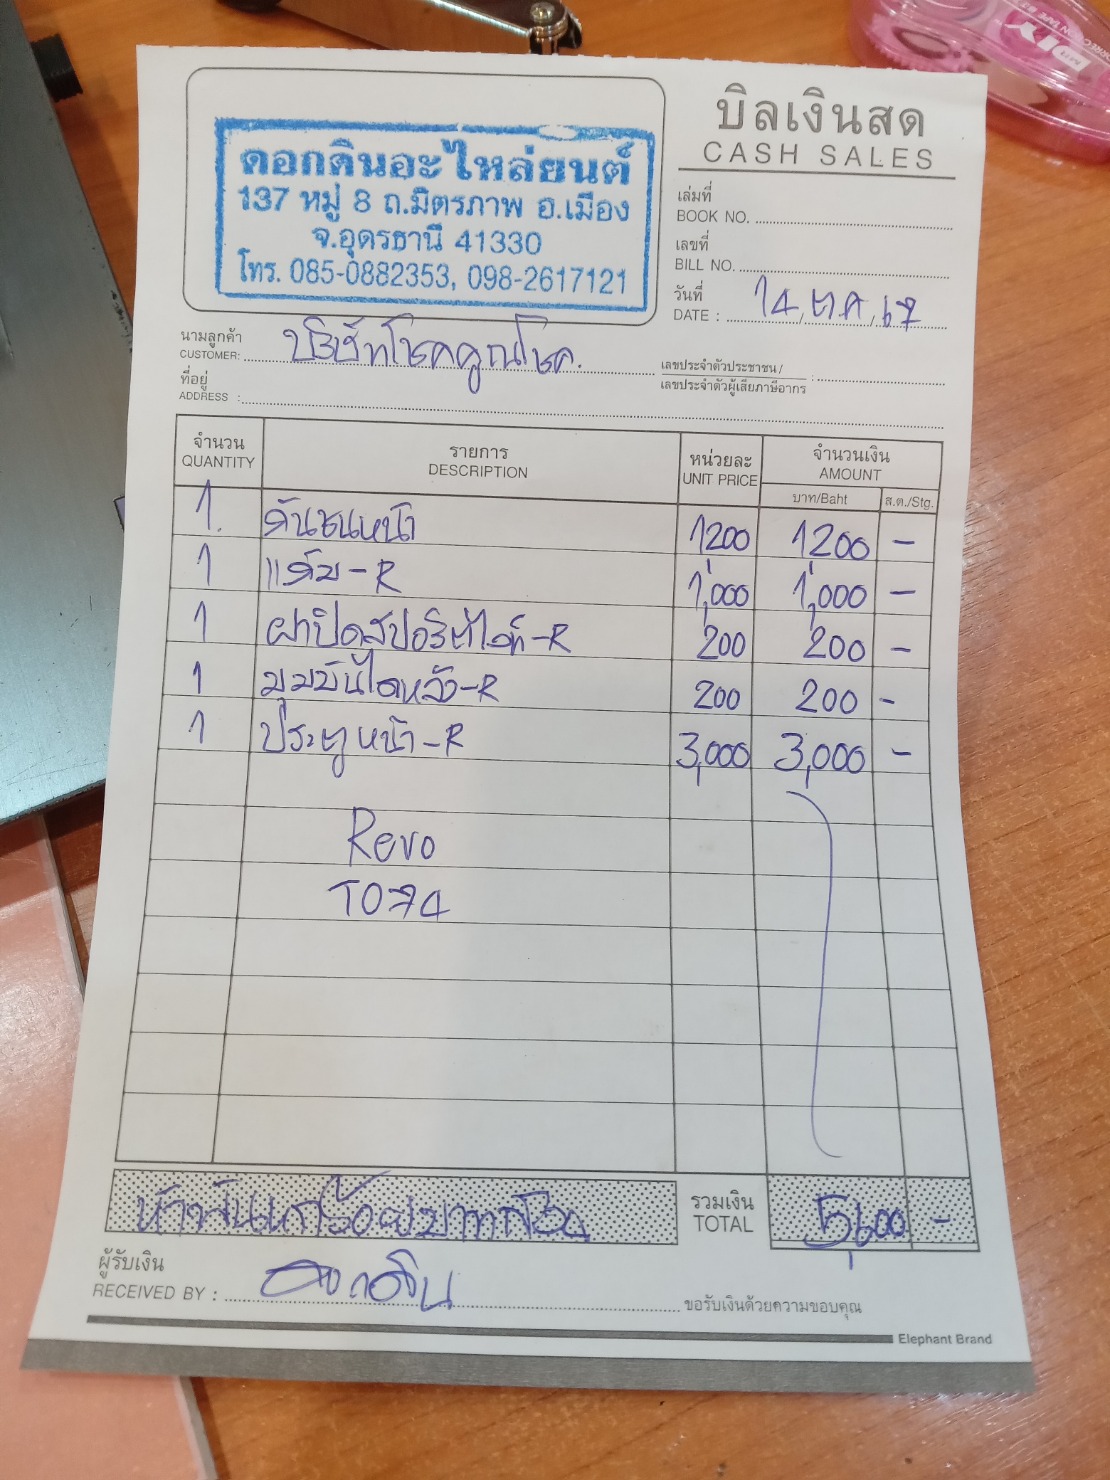 บิลเงินสด
CASH SALES
ดอกดินอะไหล่ยนต์
137 หมู่ 8 ถ.มิตรภาพ อ.เมือง
จ.อุดรธานี 41330
โทร. 085-0882353, 098-2617121
เล่มที่
BOOK NO.
เลขที่
BILL NO.
วันที่
DATE : 14, ต.ค, 67
นามลูกค้า
CUSTOMER: บริษัทโชคคูณโชค.
เลขประจำตัวประชาชน/
เลขประจำตัวผู้เสียภาษีอากร :
ที่อยู่
ADDRESS :
จำนวน รายการ หน่วยละ จำนวนเงิน
QUANTITY DESCRIPTION UNIT PRICE AMOUNT
บาท/Baht ส.ต./Stg.
1. กันชนหน้า 1200 1200 -
1 แก้ม-R 1,000 1,000 -
1 ฝาปิดสปอร์ตไลท์-R 200 200 -
1 มุมบันไดหลัง-R 200 200 -
1 ประตูหน้า-R 3,000 3,000 -
Revo
T074
รวมเงิน
TOTAL 5,600 -
ผู้รับเงิน
RECEIVED BY : ดอกดิน
ขอรับเงินด้วยความขอบคุณ
Elephant Brand